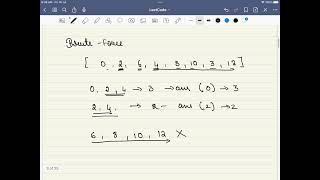 LeetCode
Brute-Force
[ 0, 2, 6, 4, 8, 10, 3, 12 ]
0, 2, 4 → 3 → ans (0) → 3
2, 4. → 2 - ans (2) → 2
6, 8, 10, 12 X